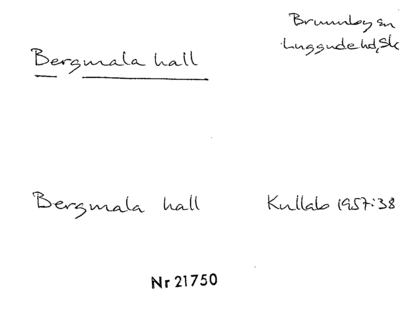 Brunnby sn
Luggude hd, Sk
Bergmala hall
Bergmala hall
Kullab 1957:38
Nr 21750